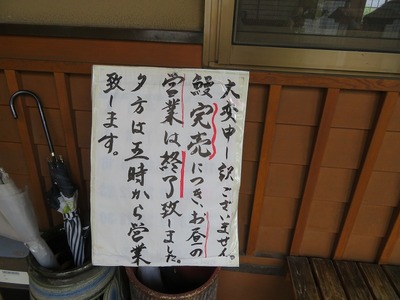 大変申し訳ございません。
鰻完売につき、お昼の
営業は終了致しました。
夕方は五時から営業
致します。